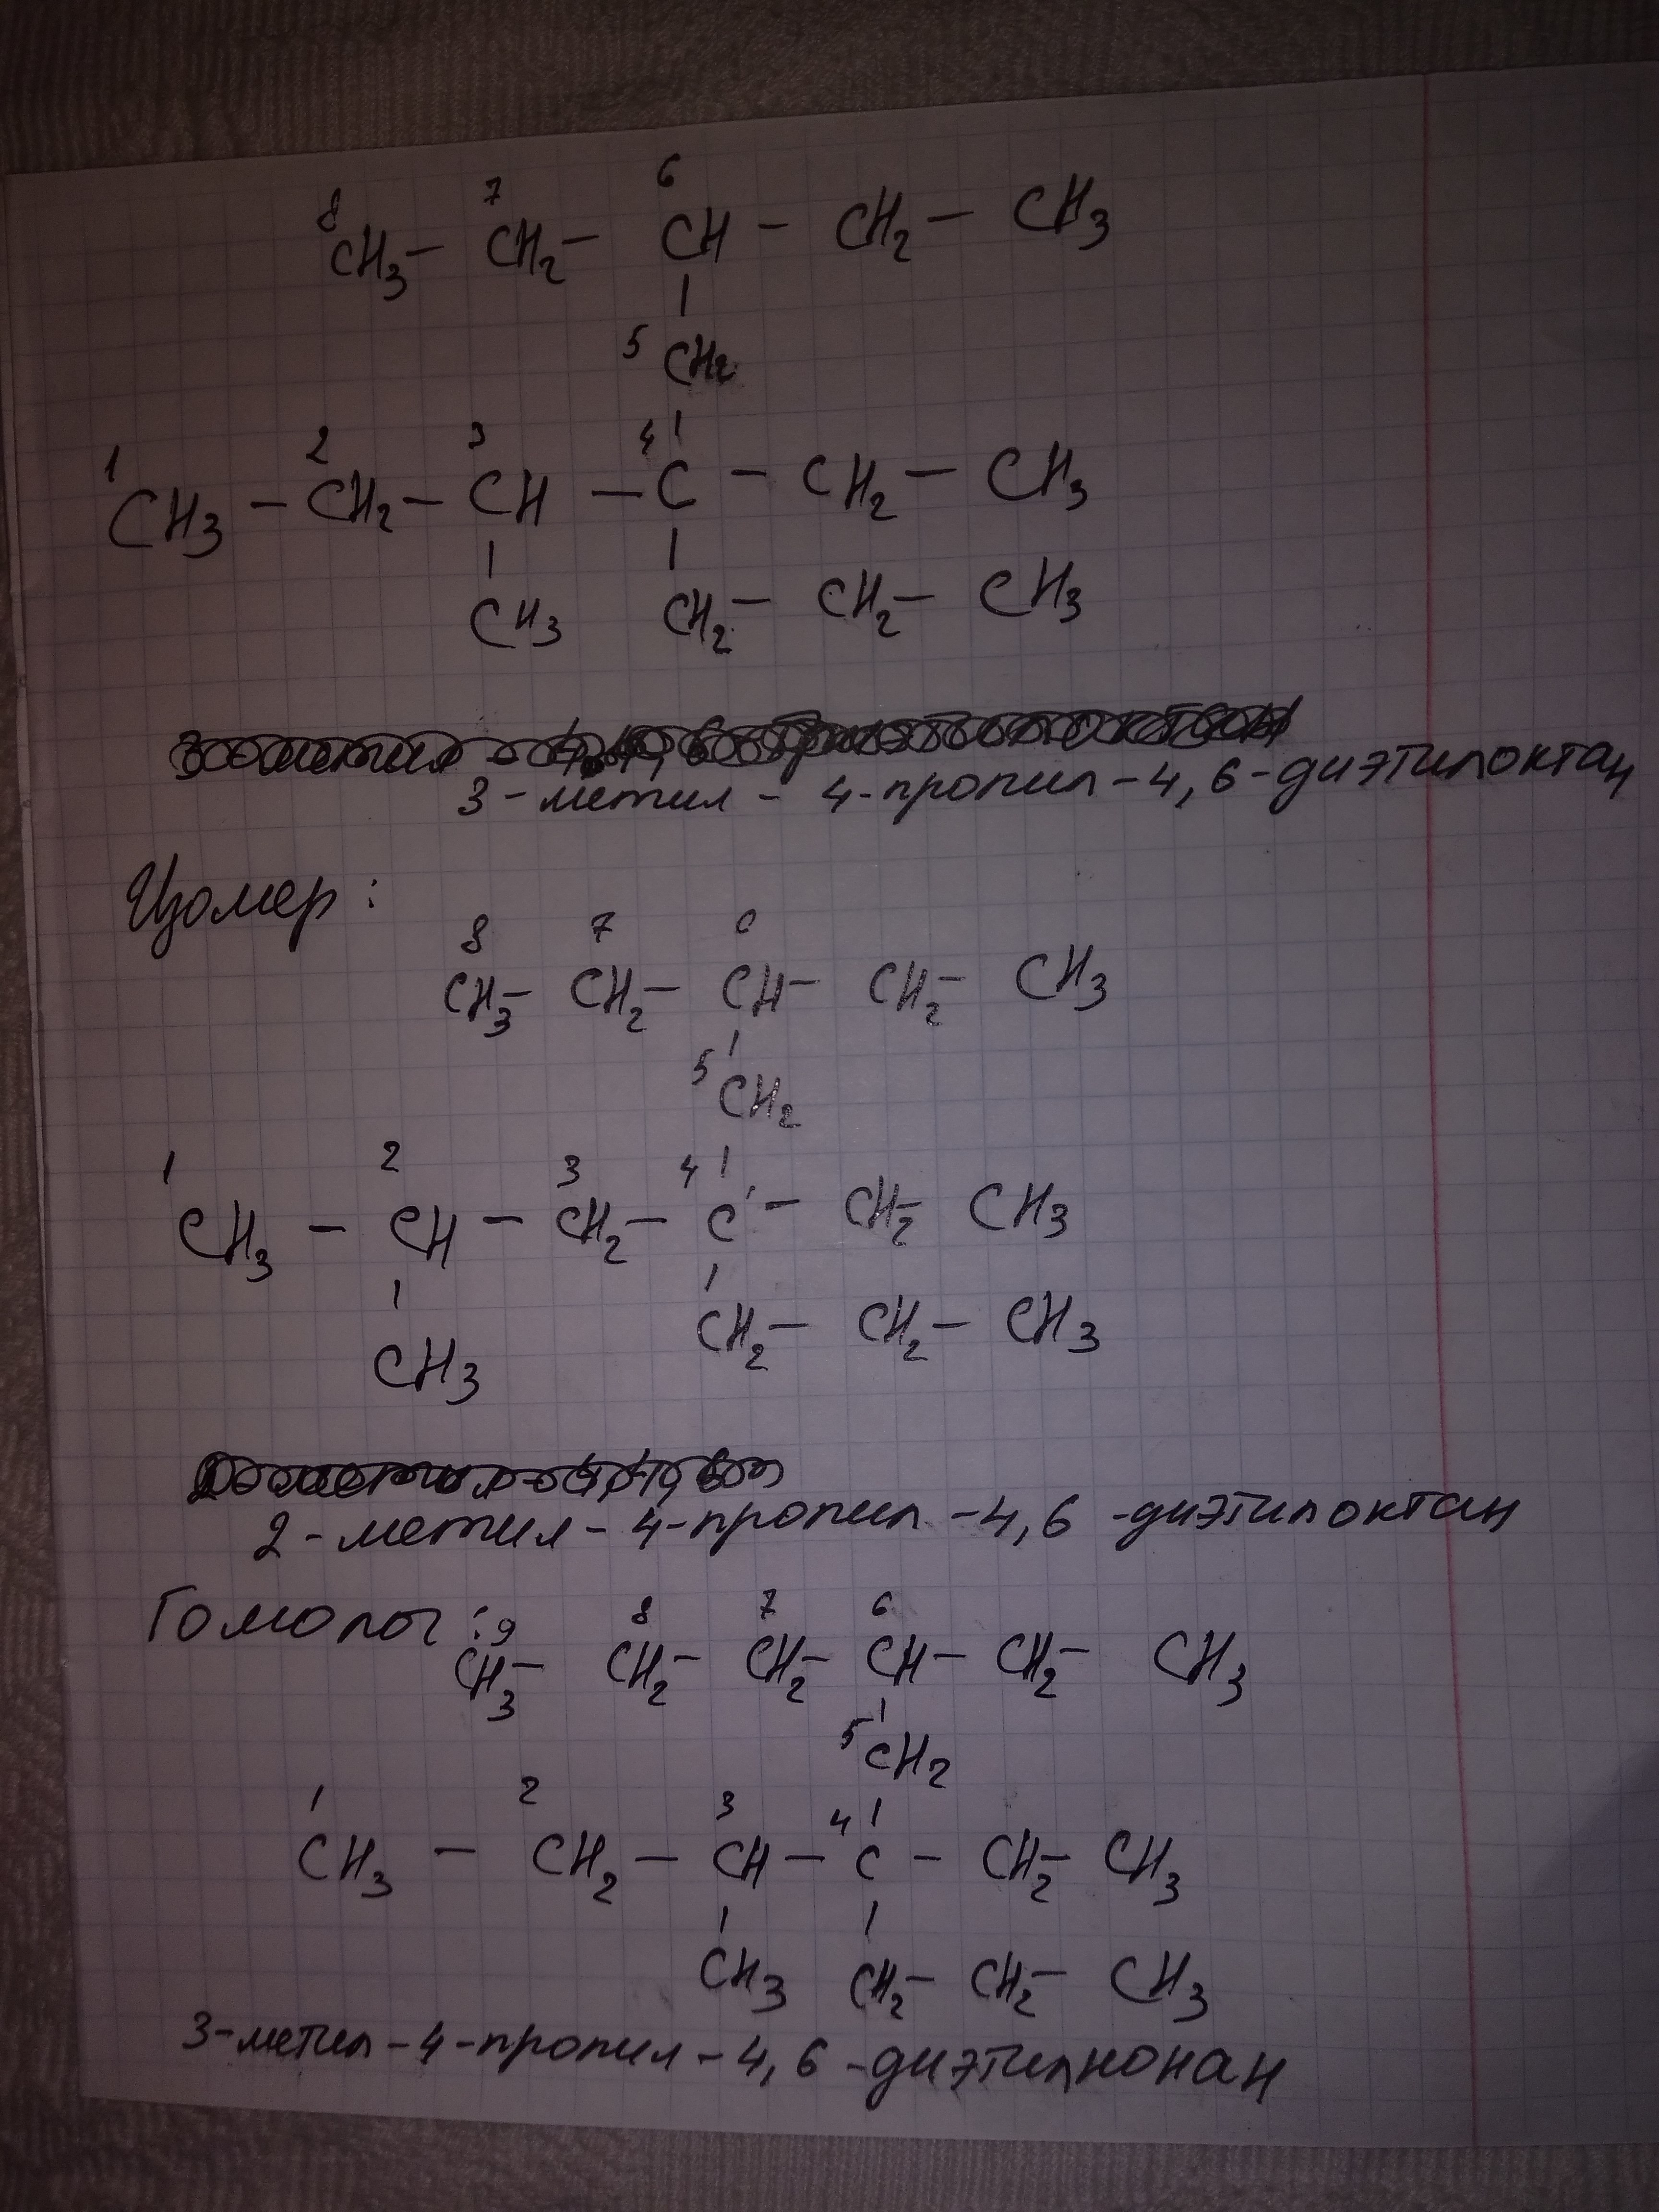 8 7 6
CH3 - CH2 - CH - CH2 - CH3
5 CH2
1 2 3 4
CH3 - CH2 - CH - C - CH2 - CH3
CH3 CH2 - CH2 - CH3
3-метил - 4-пропил-4,6-диэтилоктан
Изомер:
8 7 6
CH3 - CH2 - CH - CH2 - CH3
5 CH2
1 2 3 4
CH3 - CH - CH2 - C - CH2 - CH3
CH2 - CH2 - CH3
CH3
2-метил-4-пропил-4,6-диэтилоктан
Гомолог: 9 8 7 6
CH3 - CH2 - CH2 - CH - CH2 - CH3
5 CH2
1 2 3 4
CH3 - CH2 - CH - C - CH2 - CH3
CH3 CH2 - CH2 - CH3
3-метил-4-пропил-4,6-диэтилнонан